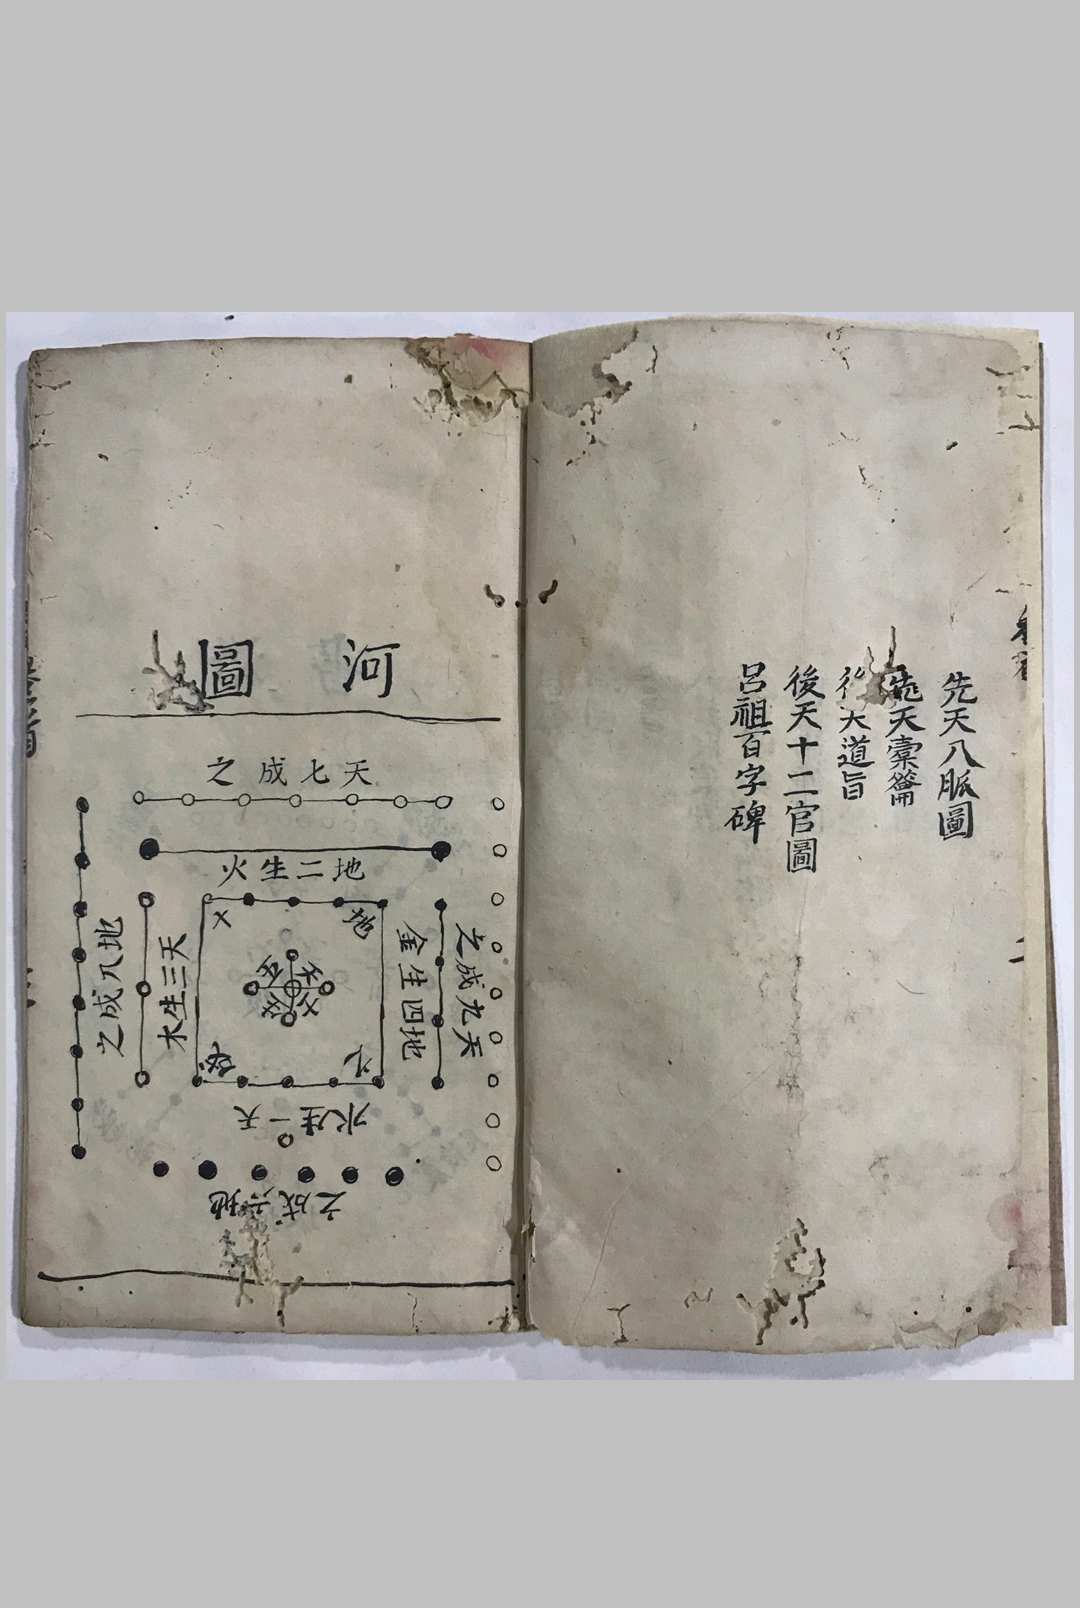 先天八脈圖
先天橐籥
天道旨
後天十二官圖
呂祖百字碑
河圖
天七成之
地二生火
天三生木
地八成之
地四生金
天九成之
天一生水
地六成之